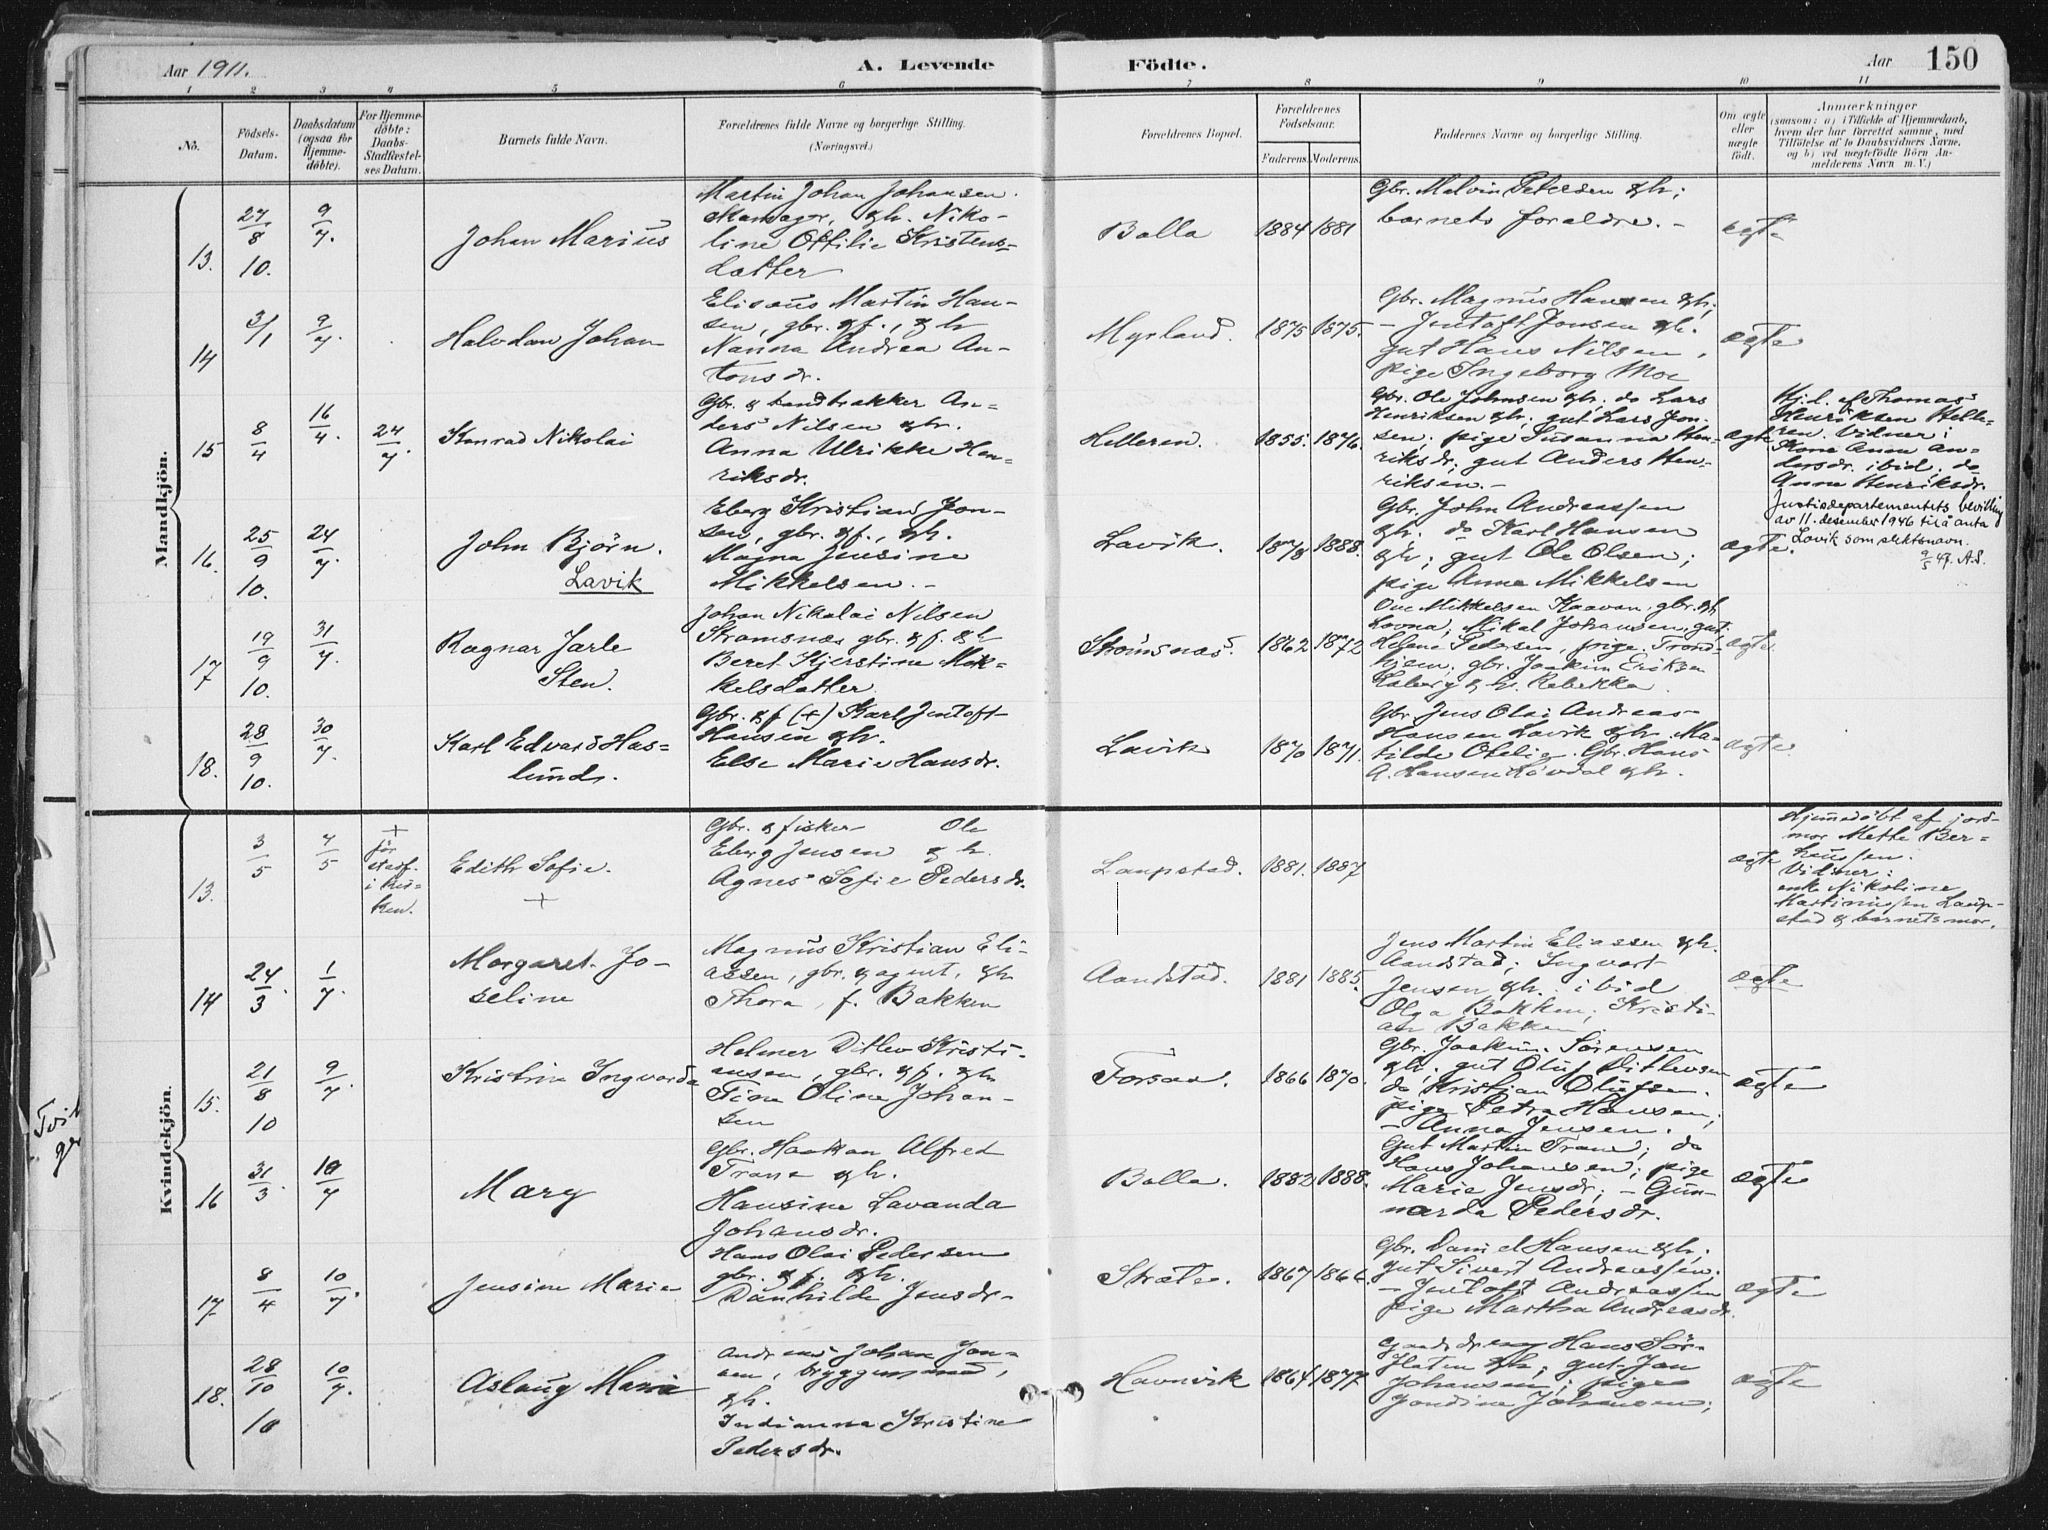 Aar 1911.
A. Levende Födte.
Aar 150
1 2 3 4 5 6 7 8 9 10 11
No.
Födsels-Datum.
Daabsdatum (ogsaa for Hjemme-döbte).
For Hjemme-döbte: Daabs-Stadfæstel-ses Datum.
Barnets fulde Navn.
Forældrenes fulde Navne og borgerlige Stilling.
(Næringsvei.)
Forældrenes Bopæl.
Forældrenes Födselsaar.
Faderens. Moderens.
Faddernes Navne og borgerlige Stilling.
Om ægte eller uægte födt.
Anmærkninger
(saasom: a) i Tilfælde af Hjemmedaab,
hvem der har forrettet samme, med
Tilföielse af to Daabsvidners Navne,
og b) ved uægtefödte Börn An-
melderens Navn m. V.)
Mandkjön.
13.
27/8 10.
9/7.
Johan Marius
Martin Johan Johansen
gh. Niko-
line Ottilie Kristens-
datter
Bolla
1884 1881
Gbr. Melvin Petersen & h;
barnets foraldre. -
ægte
14
3/1
9/7.
Halvdan Johan
Elisæus Martin Han-
sen, gbr. & f., & h
Nanna Andrea An-
tonsdr.
Myrland.
1875 1875.
Gbr. Magnus Hansen & h;
- Jentoft Jensen & h.
gut Hans Nilsen,
pige Ingeborg Moe
ægte
15
8/4
16/4.
24/7
Konrad Nikolai
Gbr. & handtrakker An-
ders Nilsen & h.
Anna Ulrikke Hen-
riksdr.
Helleren.
1855. 1876.
Gbr. Ole Johnsen & h. do Lars
Henriksen & h; gut Lars Jon-
sen; pige Susanna Hen-
riksdr; gut Anders Hen-
riksen. -
ægte
Hj.d. af Thomas
Henriksen Helle-
ren. Vidner:
Kone Anna An-
dersdr. ibid. do
Anna Henriksdr.
16.
25/9 10.
24/7
John Björn.
Lavik
Eberg Kristian Jon-
sen, gbr. & f., & h.
Magna Jensine
Mikkelsen. -
Lavik.
1878 1888.
Gbr. John Andreassen
& h. do Karl Hansen
& h; gut Ole Olsen;
pige Anna Mikkelsen
ægte.
Justisdepartementets bevilling
av 11. desember 1946 til å anta
Lavik som slektsnavn.
9/5 47. A.S.
17
19/9 10.
31/7.
Ragnar Jarle
Sten.
Johan Nikolai Nilsen
Strømsnæs gbr. & f. & h
Beret Kjerstine Mik-
kelsdatter.
Strömsnæs.
1862 1872
Ove Mikkelsen Kaavan, gbr. & h
Lovna; Mikal Johansen, gut;
Helena Pedersen, pige, Trond-
hjem; gbr. Joakim Eriksen
& h. Rebekka.
ægte.
18.
28/9 10.
30/7.
Karl Edvard Has-
lund.
Gbr. & f (+) Karl Jentoft
Hansen & h.
Else Marie Hansdr.
Lavik
1870 1871.
Gbr. Jens Olai Andreas
Hansen Lavik & h. Ma-
tilde Otelie. Gbr. Hans
A. Hansen Lövdal & h.
ægte.
Kvindekjön.
13.
3/5
4/5
+
før
stadf.
i kir-
ken.
Edith Sofie.
+
Gbr. & fisker Ole
Eberg Jensen & h.
Agnes Sofie Pedersdr.
Laupstad.
1881. 1887
ægte
Hjemedöbt af jord-
mor Mette Ber-
Vidner:
enke Nikoline
Martinussen Laup-
stad & barnets mor.
14
24/3.
1/7.
Margaret Jo-
seline
Magnus Kristian Eli-
assen, gbr. & agent, & h
Thora, f. Bakken
Aandstad.
1881 1885.
Jens Martin Eliassen & h.
Aandstad; Ingvart
Jensen & h. ibid
Olga Bakken; Kristi-
an Bakken.
ægte
15.
21/8 10
9/7
Kristine Ingvarda
Helmer Ditlev Kristi-
ansen, gbr. & f. & h
Tina Olina Johan-
sen
Forsaa.
1866 1870.
Gbr. Joakim Sørensen
& h; gut Oluf Ditlevsen
do Kristian Olufsen.
pige Petra Hansen;
- Anna Jensen.
ægte
16
31/3.
10/7
Mary
Gbr. Haakon Alfred
Trane & h.
Hansine Lavanda
Johansdr.
Bolla.
1882 1888.
Gut Martin Trane; do
Hans Johansen; pige
Marie Jensdr; - Gun-
narda Pedersdr.
ægte
17.
8/4
10/7.
Jensine Marie
Hans Olai Pedersen
gbr. & f. & h.
Danhilde Jensdr-
Stræte.
1867 1866.
Gbr. Daniel Hansen & h.
gut Sivert Andreassen;
- Jentoft Andreassen
pige Martha Andreasdr.
ægte
18.
28/10 10
10/7.
Aslaug Marie
Andreas Johan Jon-
sen, bryggemand,
& h.
Indianna Kristine
Pedersdr.
Havnvik
1864 1877.
Hans Sör-
flaten & h; gut Jan
Johansen; pige
Gondine Johansen;
ægte